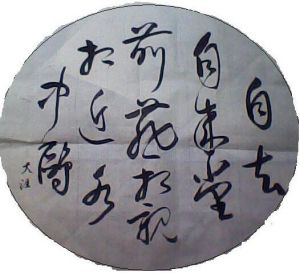 自去
自来堂
前燕相親
相近水
中鷗